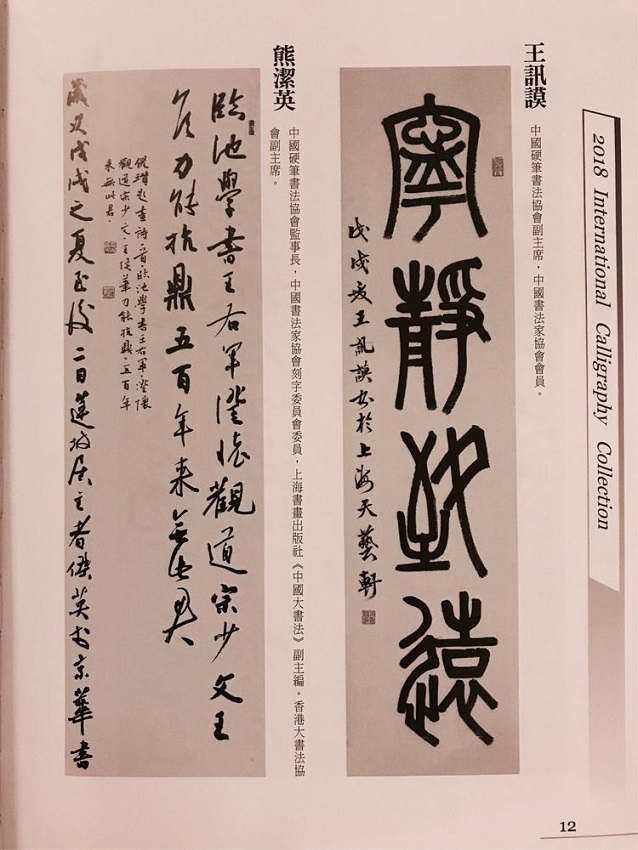 2018 International Calligraphy Collection
王訊謨
中國硬筆書法協會副主席,中國書法家協會會員。
寧靜致遠
戊戌夏王訊謨書於上海天藝軒
熊潔英
中國硬筆書法協會監事長,中國書法家協會刻字委員會委員,上海書畫出版社《中國大書法》副主編。香港大書法協
會副主席。
臨池學書王右軍澄懷觀道宗少文王
侯力能扛鼎五百年来無此君
倪瓚題畫詩一首臨池學書王右軍澄懷
觀道宗少文王侯筆力能扛鼎五百年
来無此君
戊戌之夏至後二日蓮居主者潔英於京華書
12